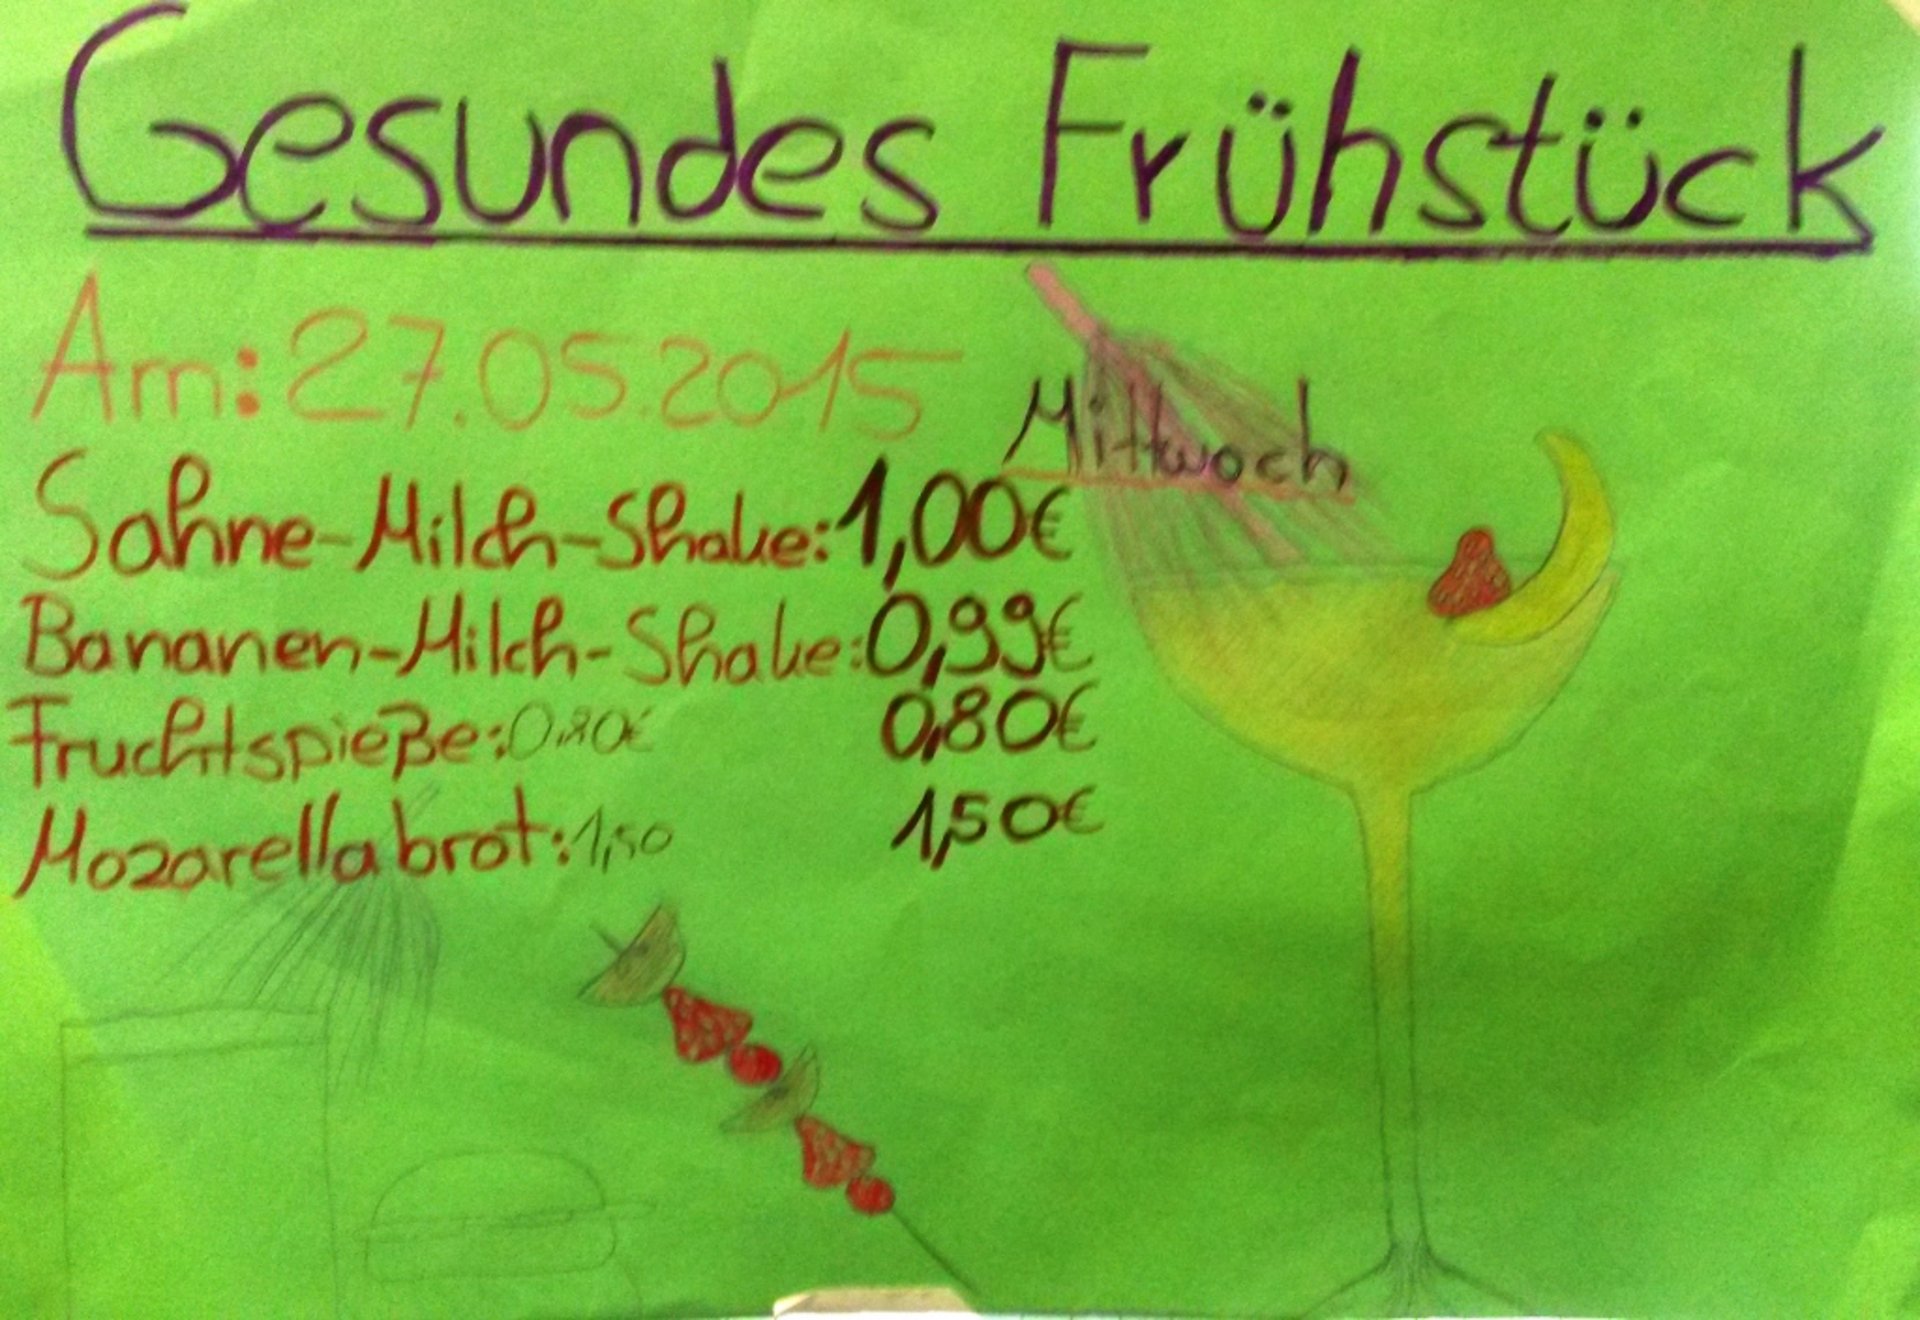 Gesundes Frühstück
Am: 27.05.2015
Mittwoch
Sahne-Milch-Shake: 1,00€
Bananen-Milch-Shake: 0,99€
Fruchtspieße: 0,80€ 0,80€
Mozarellabrot: 1,50 1,50€